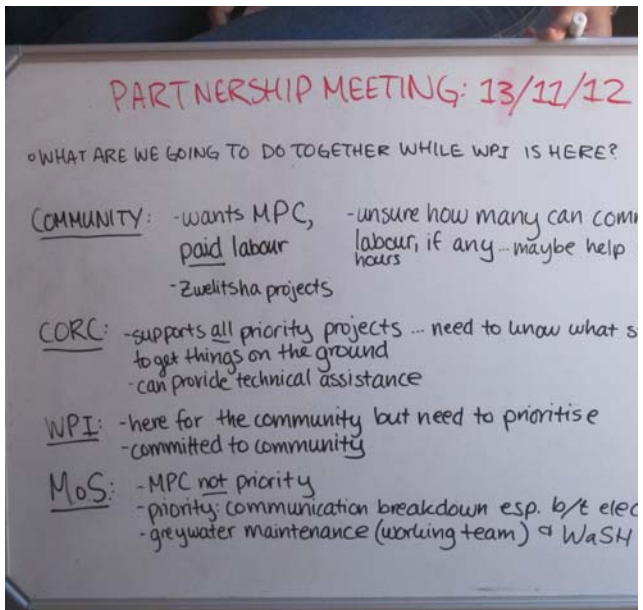 PARTNERSHIP MEETING: 13/11/12
◦WHAT ARE WE GOING TO DO TOGETHER WHILE WPI IS HERE?
COMMUNITY: -wants MPC, -unsure how many can
paid labour labour, if any ... maybe help
hours
-Zwelitsha projects
CORC: -supports all priority projects ... need to know what
to get things on the ground
-can provide technical assistance
WPI: -here for the community but need to prioritise
-committed to community
MoS: -MPC not priority
-priority: communication breakdown esp. b/t
-greywater maintenance (working team) & WaSH